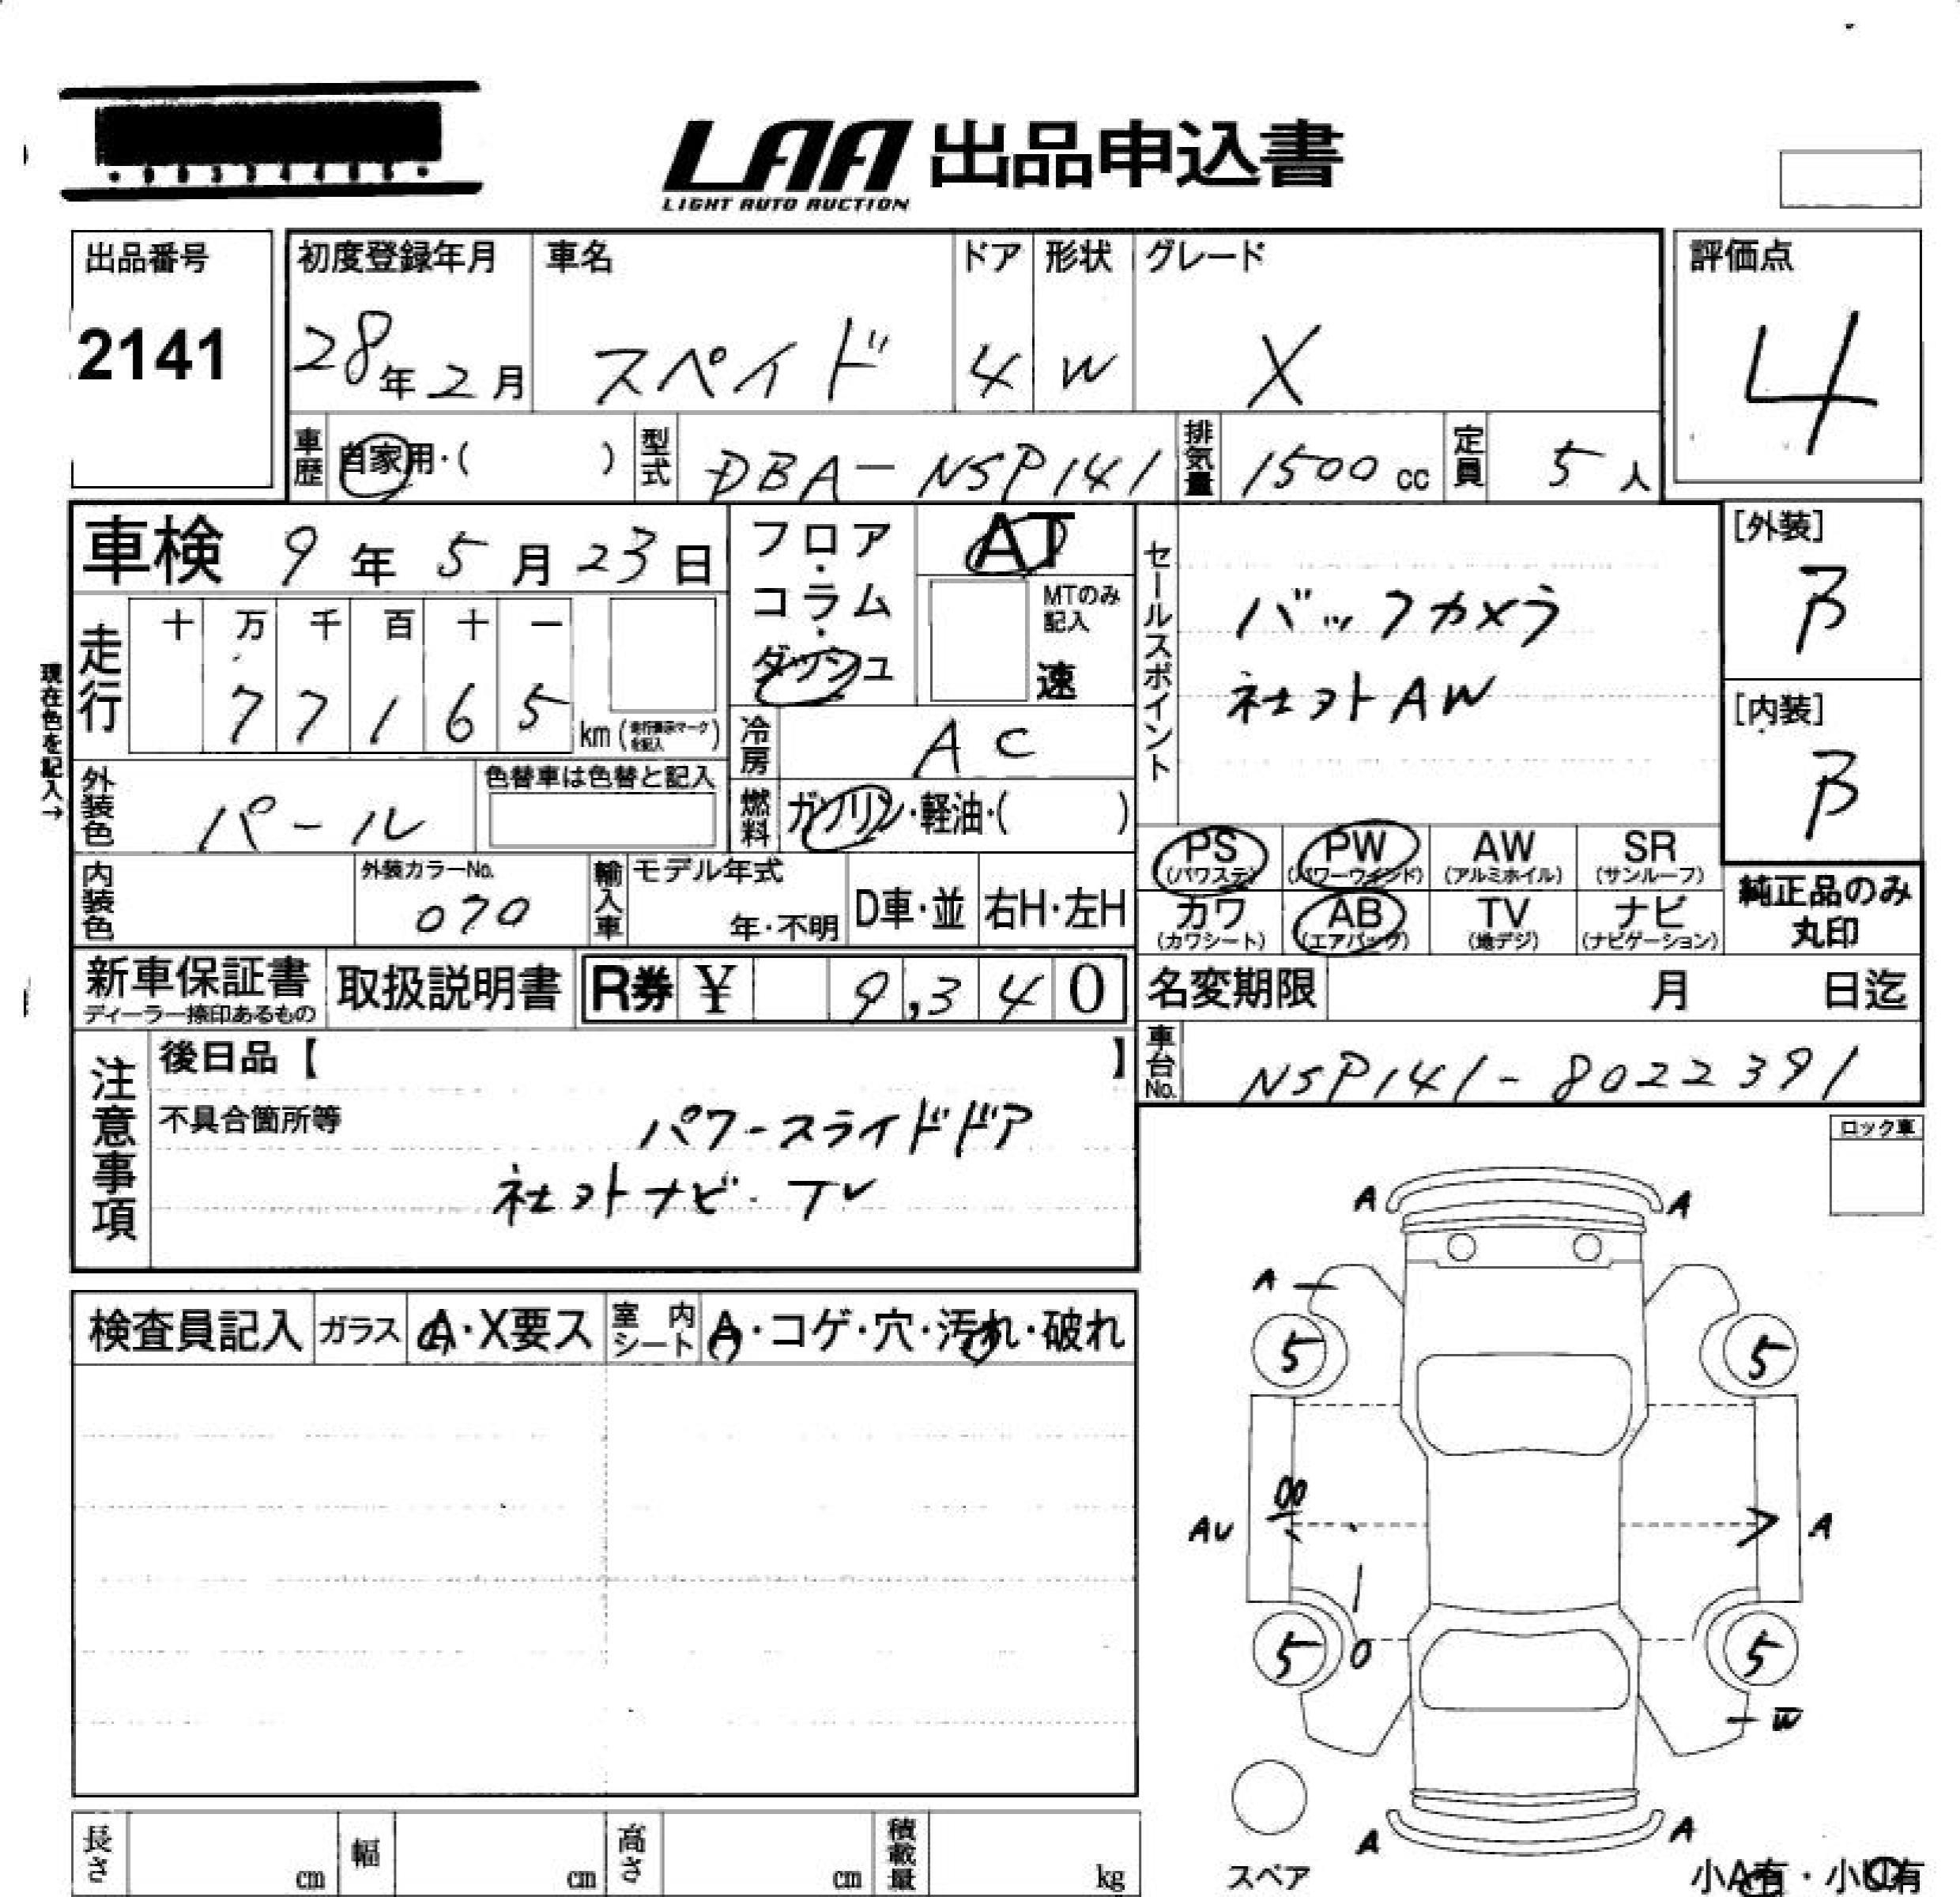 LAA 出品申込書
LIGHT AUTO AUCTION
出品番号
2141
初度登録年月
28年2月
車名
スペイド
ドア
4
形状
W
グレード
X
評価点
4
車歴
自家用・( )
型式
DBA-NSP141
排気量
1500cc
定員
5人
車検 9年5月23日
フロア・コラム・ダッシュ
AT
MTのみ記入
速
セールスポイント
バックカメラ
社外AW
[外装]
B
[内装]
B
現在色を記入→
走行
十 万 千 百 十 一
7 7 1 6 5 km (走行表示マークを記入)
冷房
AC
外装色
パール
色替車は色替と記入
燃料
ガソリン・軽油・( )
PS (パワステ)
PW (パワーウインド)
AW (アルミホイル)
SR (サンルーフ)
カワ (カワシート)
AB (エアバッグ)
TV (地デジ)
ナビ (ナビゲーション)
純正品のみ丸印
内装色
外装カラーNo.
070
輸入車
モデル年式
年・不明
D車・並
右H・左H
新車保証書
ディーラー捺印あるもの
取扱説明書
R券 ¥ 9,340
名変期限 月 日迄
車台No.
NSP141-8022391
注意事項
後日品【 】
不具合箇所等
パワースライドドア
社外ナビ・TV
ロック車
検査員記入
ガラス
A・X要ス
室内シート
A・コゲ・穴・汚れ・破れ
A A
A
5 5
AU A
5 5
W
A A
スペア
小A有・小U有
長さ cm
幅 cm
高さ cm
積載量 kg